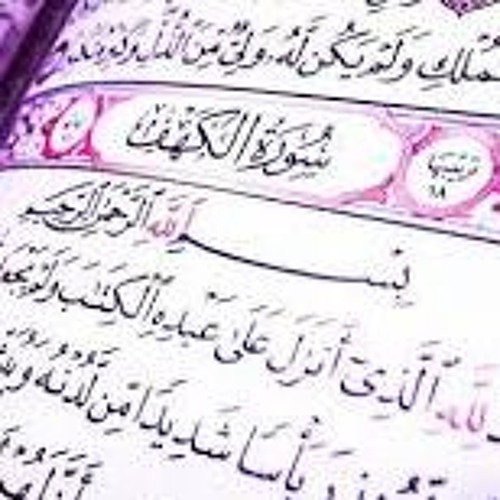 ٱلۡمُلۡكِ وَلَمۡ يَكُن لَّهُۥ وَلِيٌّ مِّنَ ٱلذُّلِّ وَكَبِّرۡهُ
سُورَةُ الكَهۡفِ
ترتيبها ١٨
بِسۡمِ ٱللَّهِ ٱلرَّحۡمَٰنِ ٱلرَّحِيمِ
لِلَّهِ ٱلَّذِيٓ أَنزَلَ عَلَىٰ عَبۡدِهِ ٱلۡكِتَٰبَ وَلَمۡ يَجۡعَل
بَأۡسٗا شَدِيدٗا مِّن لَّدُنۡهُ